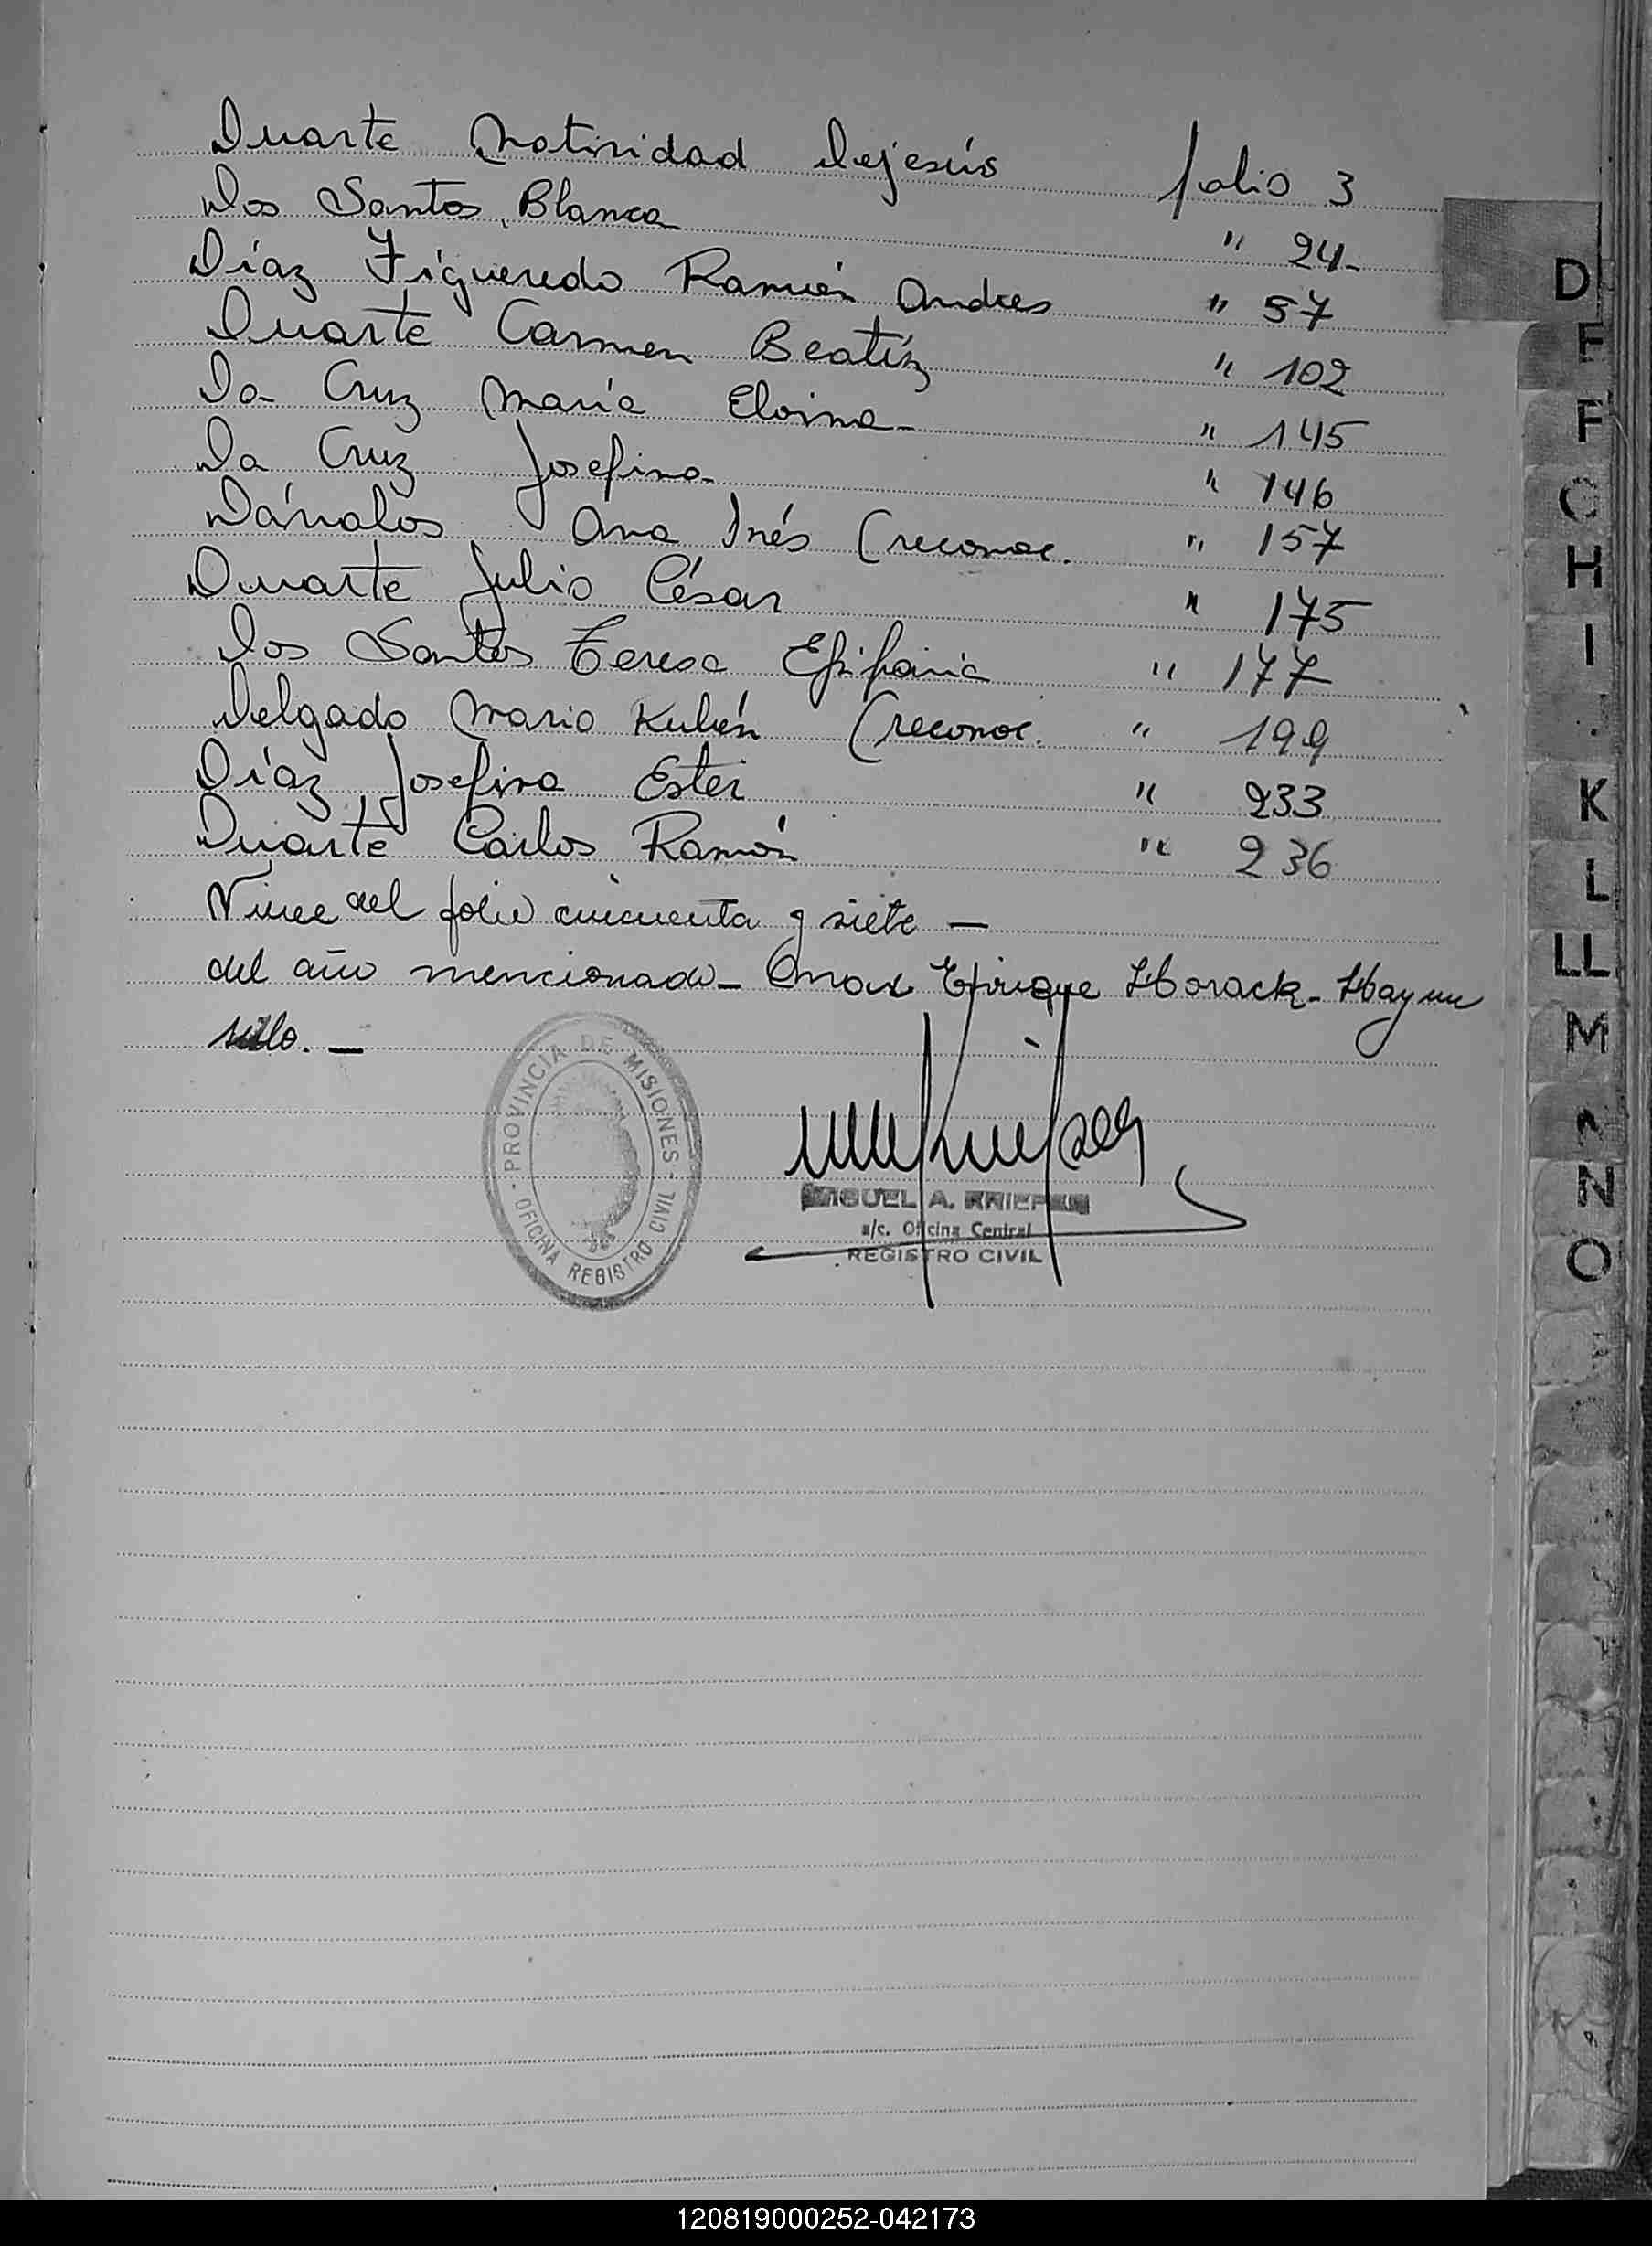 Duarte Natividad Dejesús folio 3
Dos Santos, Blanca " 24-
Díaz Figueredo Ramón Andres " 57
Duarte Carmen Beatíz " 102
Da Cruz María Eloina- " 145
Da Cruz Josefina- " 146
Dávalos Ana Inés (reconoc. " 157
Duarte Julio César " 175
Dos Santos Teresa Epifania " 177
Delgado Mario Rubén (reconoc. " 199
Díaz Josefina Ester " 233
Duarte Carlos Ramón " 236
Viene del folio cincuenta y siete —
del año mencionado- Enrique Horack- Hay un
sello. —
PROVINCIA DE MISIONES
OFICINA REGISTRO CIVIL
MIGUEL A.
a/c. Oficina Central
REGISTRO CIVIL
D
E
F
G
H
I
K
L
LL
M
N
O
120819000252-042173